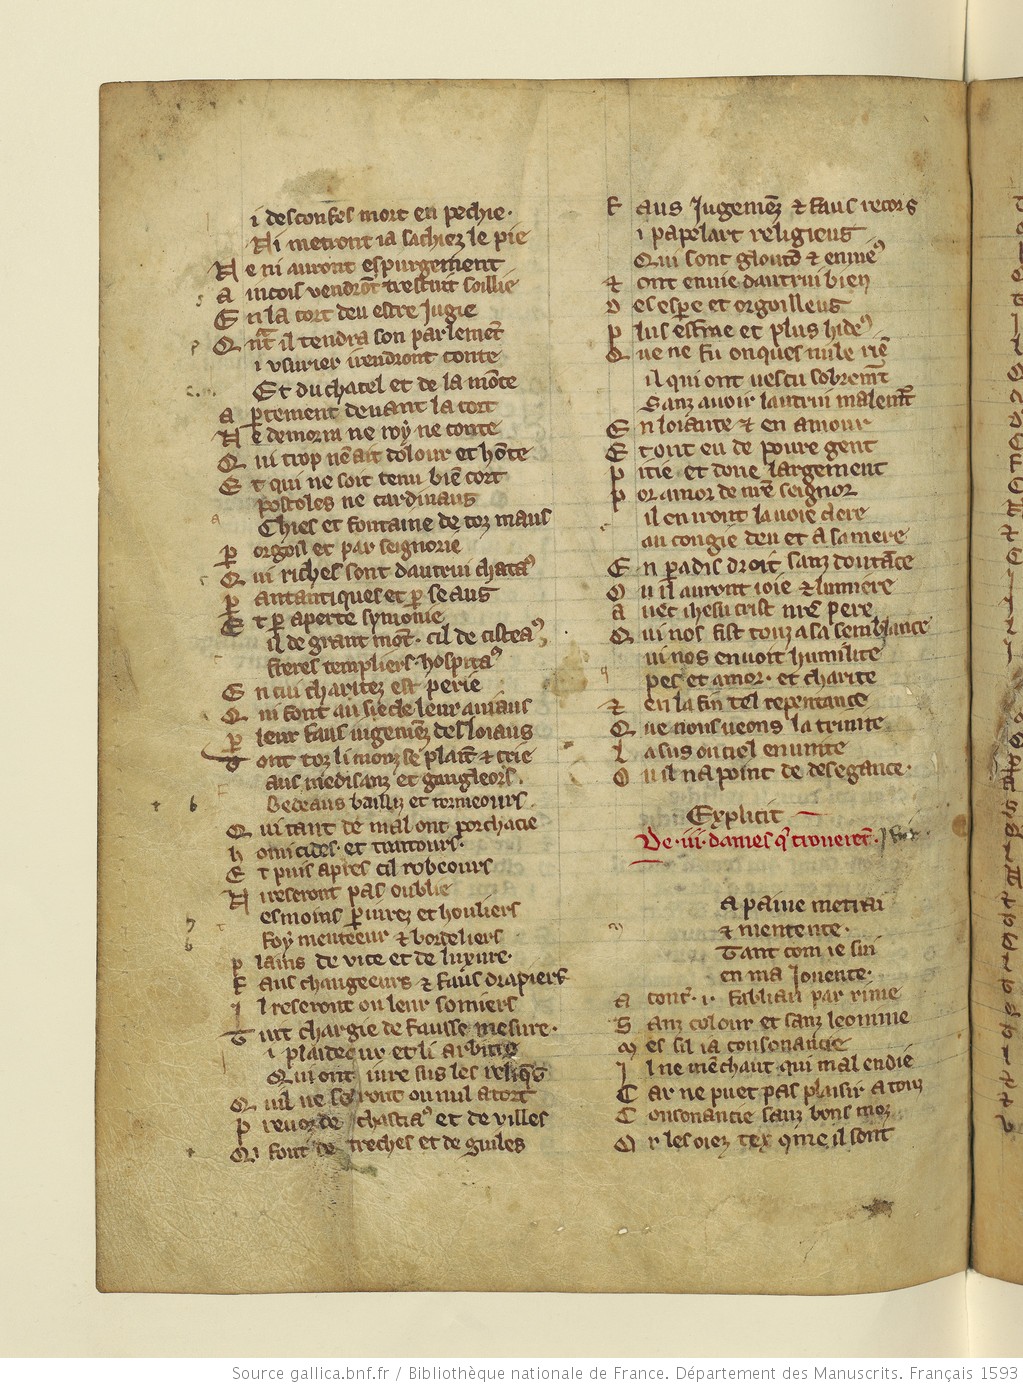 i desconfes mort en pechie·
Ni metront ia sachiez le pie
N e ni auront espurgement
A incois vendrōt trestuit soillie
E n la cort deu estre Jugie
Q nt il tendra son parlemēt
i vsurier vendront conte
Et du chatel et de la mōte
A ꝑtement deuant la cort
N e demorra ne roy ne conte
Q ui trop nen ait dolour et hōte
E t qui ne soit tenu biē cort
postoles ne cardinaus
Chies et fontaine de toz maus
P orgoil et par seignorie
Q ui riches sont dautrui chataꝰ
P antantiques et ꝑ seaus
E t ꝑ aperte symonie
il de grant mōt· cil de cisteaꝰ
freres templiers· hospitaꝰ
E n cui charitez est perie
Q ui font au siecle leur auiaus
P leur faus iugemēz desloiaus
D ont toz li monz se plaīt ⁊ crie
aus medisanz et gangleors·
Bedeaus bailliz et tormeours
Q ui tant de mal ont porchacie
h omicides· et traitours·
E t puis apres cil robeours
N i reseront pas oublie
es moins ꝑiurez et houliers
Foy menteeur ⁊ bordeliers
P lains de vice et de luxure·
F aus changeeurs ⁊ faus drapiers
I l reseront ou leur somiers
T uit chargie de fausse mesure·
i plaideeur et li arbitre
Qui ont iure sus les reliqs
Q uil ne seront ou nul a tort
P reuoz de chastiaꝰ et de villes
Q i font de treches et de guiles
F aus Jugemēz ⁊ faus recors
i papelart religieus
Qui sont glouto ⁊ enuieꝰ
⁊ ont enuie dautrui bien
D espe et orgoilleus
P lus estrāe et plus hideꝰ
Q ue ne fu onques nule riē
il qui ont uescu sobremēt
Sanz auoir lautrui malemēt
E n loiaute ⁊ en amour
E t ont eu de poure gent
P itie et done largement
P or amor de nrē seignor
il en iront la uoie clere
au congie deu et a sa mere
E n ꝑadis droit sanz doutāce
O u il auront ioie ⁊ lumiere
A uec ihesu crist nrē pere
Q ui nos fist touz a sa semblance
ui nos enuoit humilite
pes et amor· et charite
⁊ en la fin tel repentance
Q ue nous ueons la trinite
L assus ou ciel en unite
O u il na point de desegance·
Explicit
De ·iii· dames q̄ trouerēt·
A paine metrai
⁊ mentente·
Tant com ie sui
en ma Jouente·
A conter ·i· fabliau par rime
S anz colour et sanz leomme
M es sil ia consonancie
I l ne mē chaut qui mal en die
C ar ne puet pas plaisir a touz
C onsonancie sanz bons moz
O r les oiez tex qme il sont
Source gallica.bnf.fr / Bibliothèque nationale de France. Département des Manuscrits. Français 1593